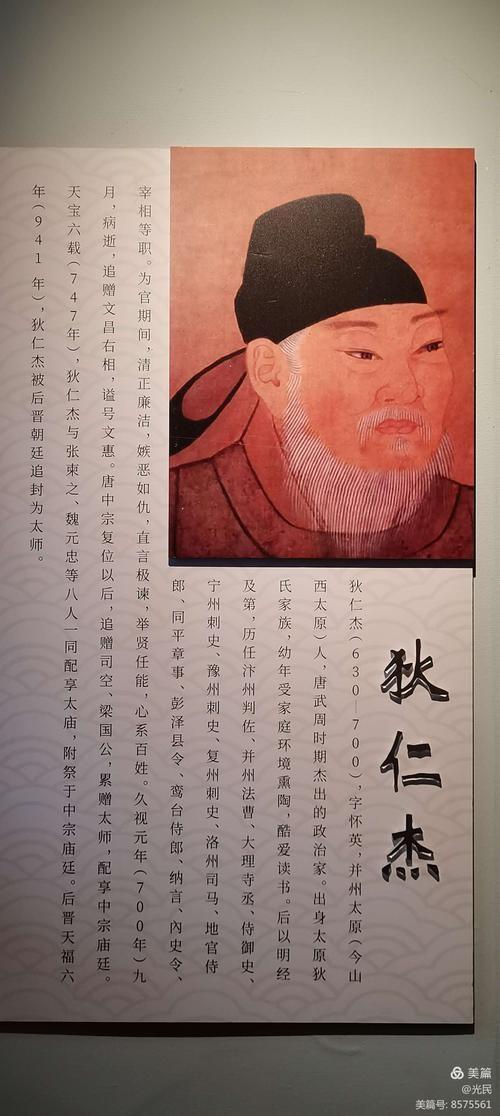 狄仁杰
狄仁杰(630—700),字怀英,并州太原(今山
西太原)人,唐武周时期杰出的政治家。出身太原狄
氏家族,幼年受家庭环境熏陶,酷爱读书。后以明经
及第,历任汴州判佐、并州法曹、大理寺丞、侍御史、
宁州刺史、豫州刺史、复州刺史、洛州司马、地官侍
郎、同平章事、彭泽县令、鸾台侍郎、纳言、内史令、
宰相等职。为官期间,清正廉洁,嫉恶如仇,直言极谏,举贤任能,心系百姓。久视元年(700年)九
月,病逝,追赠文昌右相,谥号文惠。唐中宗复位以后,追赠司空、梁国公,累赠太师,配享中宗庙廷。
天宝六载(747年),狄仁杰与张柬之、魏元忠等八人一同配享太庙,附祭于中宗庙廷。后晋天福六
年(941年),狄仁杰被后晋朝廷追封为太师。
美篇
@光民
美篇号: 8575561